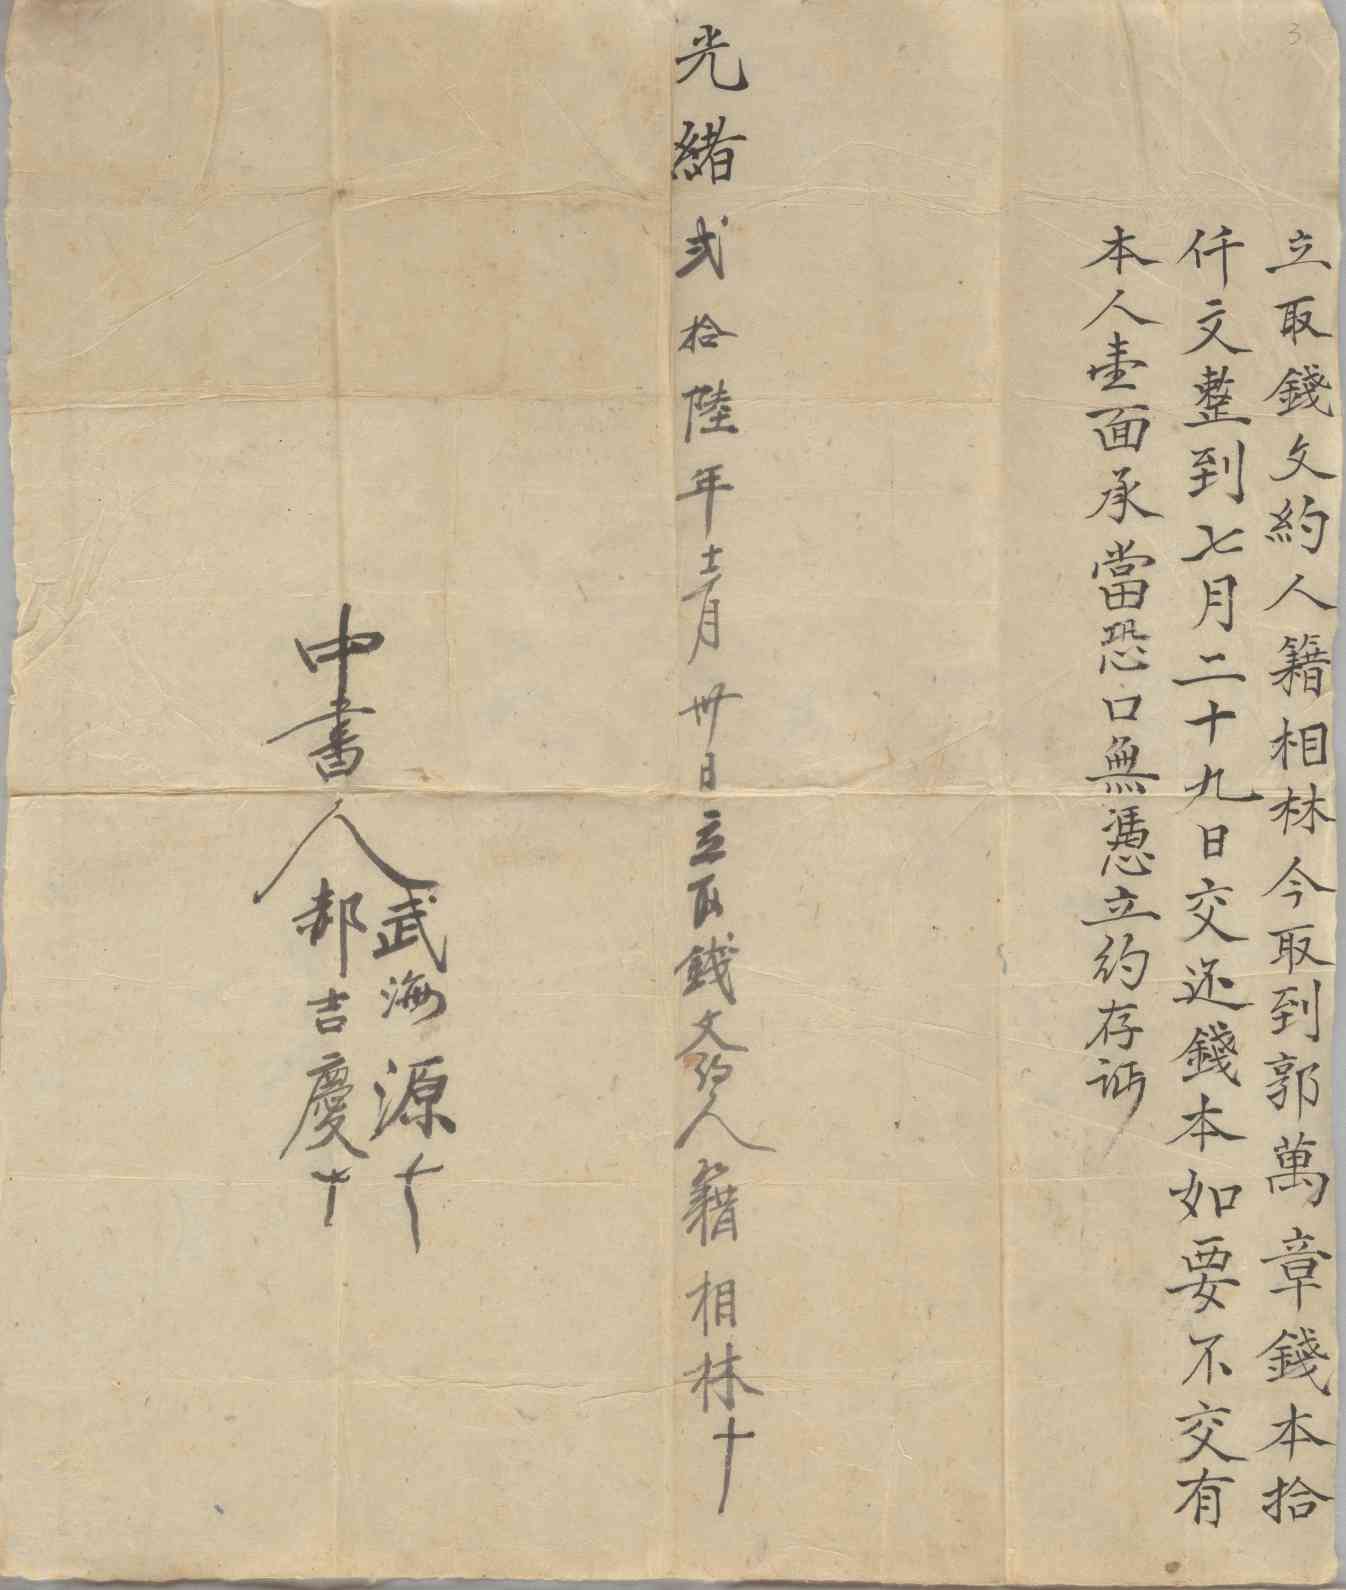 3
立取錢文約人籍相林今取到郭萬章錢本拾
仟文整到七月二十九日交还錢本如要不交有
本人壹面承當恐口無憑立約存証
光緒弍拾陸年十二月卅日立取錢文約人籍相林十
中書人
武海源十
郝吉慶十